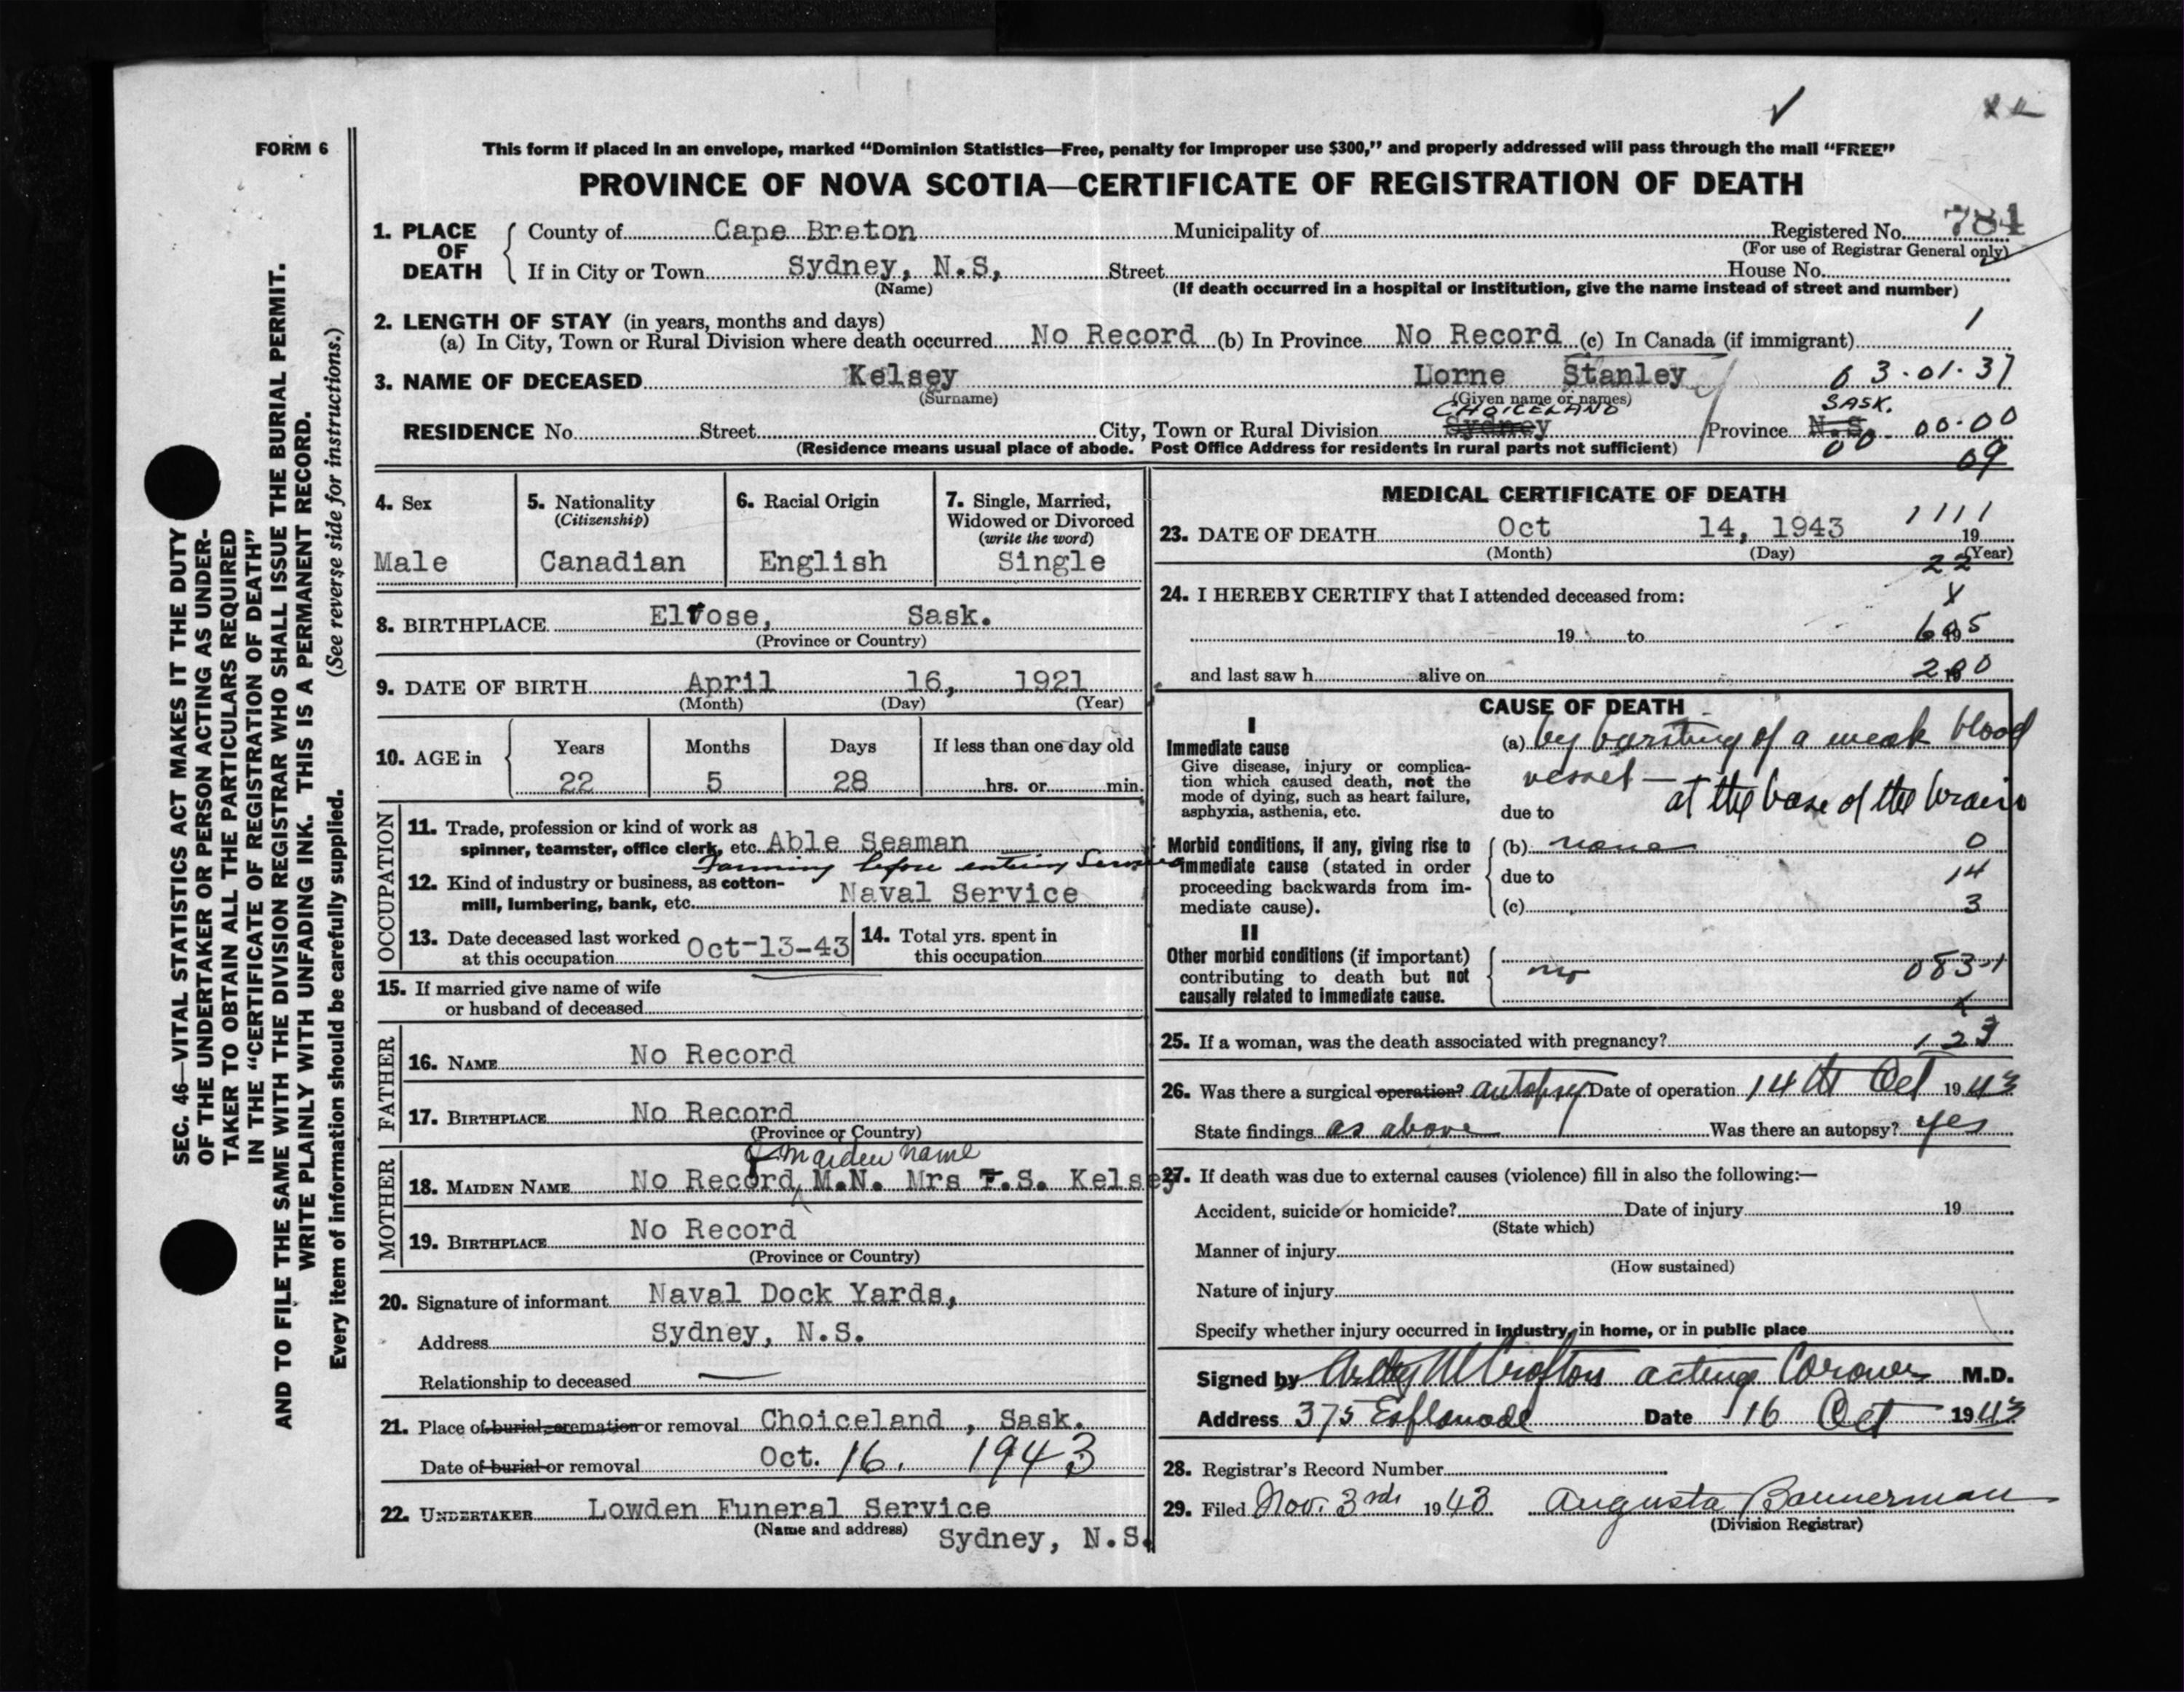 FORM 6
This form if placed in an envelope, marked “Dominion Statistics—Free, penalty for improper use $300,” and properly addressed will pass through the mail “FREE”
PROVINCE OF NOVA SCOTIA—CERTIFICATE OF REGISTRATION OF DEATH
SEC. 46—VITAL STATISTICS ACT MAKES IT THE DUTY
OF THE UNDERTAKER OR PERSON ACTING AS UNDER-
TAKER TO OBTAIN ALL THE PARTICULARS REQUIRED
IN THE “CERTIFICATE OF REGISTRATION OF DEATH”
AND TO FILE THE SAME WITH THE DIVISION REGISTRAR WHO SHALL ISSUE THE BURIAL PERMIT.
WRITE PLAINLY WITH UNFADING INK. THIS IS A PERMANENT RECORD.
Every item of information should be carefully supplied. (See reverse side for instructions.)
1. PLACE OF DEATH
County of Cape Breton Municipality of Registered No. 784
(For use of Registrar General only)
If in City or Town Sydney, N.S, Street House No.
(Name) (If death occurred in a hospital or institution, give the name instead of street and number)
2. LENGTH OF STAY (in years, months and days)
(a) In City, Town or Rural Division where death occurred No Record (b) In Province No Record (c) In Canada (if immigrant) 1
3. NAME OF DECEASED Kelsey Lorne Stanley 03.01.37
(Surname) (Given name or names)
CHOICELAND SASK.
RESIDENCE No. Street City, Town or Rural Division Sydney Province N.S. 00.00
(Residence means usual place of abode. Post Office Address for residents in rural parts not sufficient) 00 09
4. Sex
Male
5. Nationality
(Citizenship)
Canadian
6. Racial Origin
English
7. Single, Married,
Widowed or Divorced
(write the word)
Single
8. BIRTHPLACE Elrose, Sask.
(Province or Country)
9. DATE OF BIRTH April 16, 1921
(Month) (Day) (Year)
10. AGE in Years Months Days If less than one day old
22 5 28 hrs. or min.
OCCUPATION
11. Trade, profession or kind of work as
spinner, teamster, office clerk, etc. Able Seaman
Farming before entering Service
12. Kind of industry or business, as cotton-
mill, lumbering, bank, etc. Naval Service
13. Date deceased last worked
at this occupation Oct-13-43
14. Total yrs. spent in
this occupation
15. If married give name of wife
or husband of deceased
FATHER
16. NAME No Record
17. BIRTHPLACE No Record
(Province or Country)
MOTHER
of maiden name
18. MAIDEN NAME No Record, M.N. Mrs F.S. Kelsey
19. BIRTHPLACE No Record
(Province or Country)
20. Signature of informant Naval Dock Yards,
Address Sydney, N.S.
Relationship to deceased —
21. Place of burial, cremation or removal Choiceland , Sask.
Date of burial or removal Oct. 16. 1943
22. UNDERTAKER Lowden Funeral Service
(Name and address) Sydney, N.S.
MEDICAL CERTIFICATE OF DEATH
1111
23. DATE OF DEATH Oct 14, 1943 19
(Month) (Day) (Year)
22
24. I HEREBY CERTIFY that I attended deceased from: X
19 to 19 605
and last saw h alive on 19 200
CAUSE OF DEATH
I
Immediate cause
Give disease, injury or complica-
tion which caused death, not the
mode of dying, such as heart failure,
asphyxia, asthenia, etc.
(a) by bursting of a weak blood
vessel — at the base of the brain
due to
Morbid conditions, if any, giving rise to
immediate cause (stated in order
proceeding backwards from im-
mediate cause).
(b) none 0
due to 14
(c) 3
II
Other morbid conditions (if important)
contributing to death but not
causally related to immediate cause.
no 083-1
25. If a woman, was the death associated with pregnancy? 123
26. Was there a surgical operation? autopsy Date of operation 14th Oct 1943
State findings as above Was there an autopsy? yes
27. If death was due to external causes (violence) fill in also the following:—
Accident, suicide or homicide? Date of injury 19
(State which)
Manner of injury
(How sustained)
Nature of injury
Specify whether injury occurred in industry, in home, or in public place
Signed by Crofton acting Coroner M.D.
Address 375 Esplanade Date 16 Oct 1943
28. Registrar's Record Number
29. Filed Nov. 3rd 1943 Augusta Bannerman
(Division Registrar)